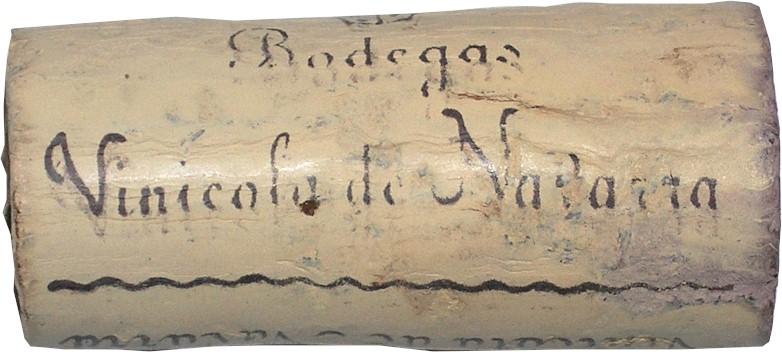 Bodegas
Vinicola de Navarra